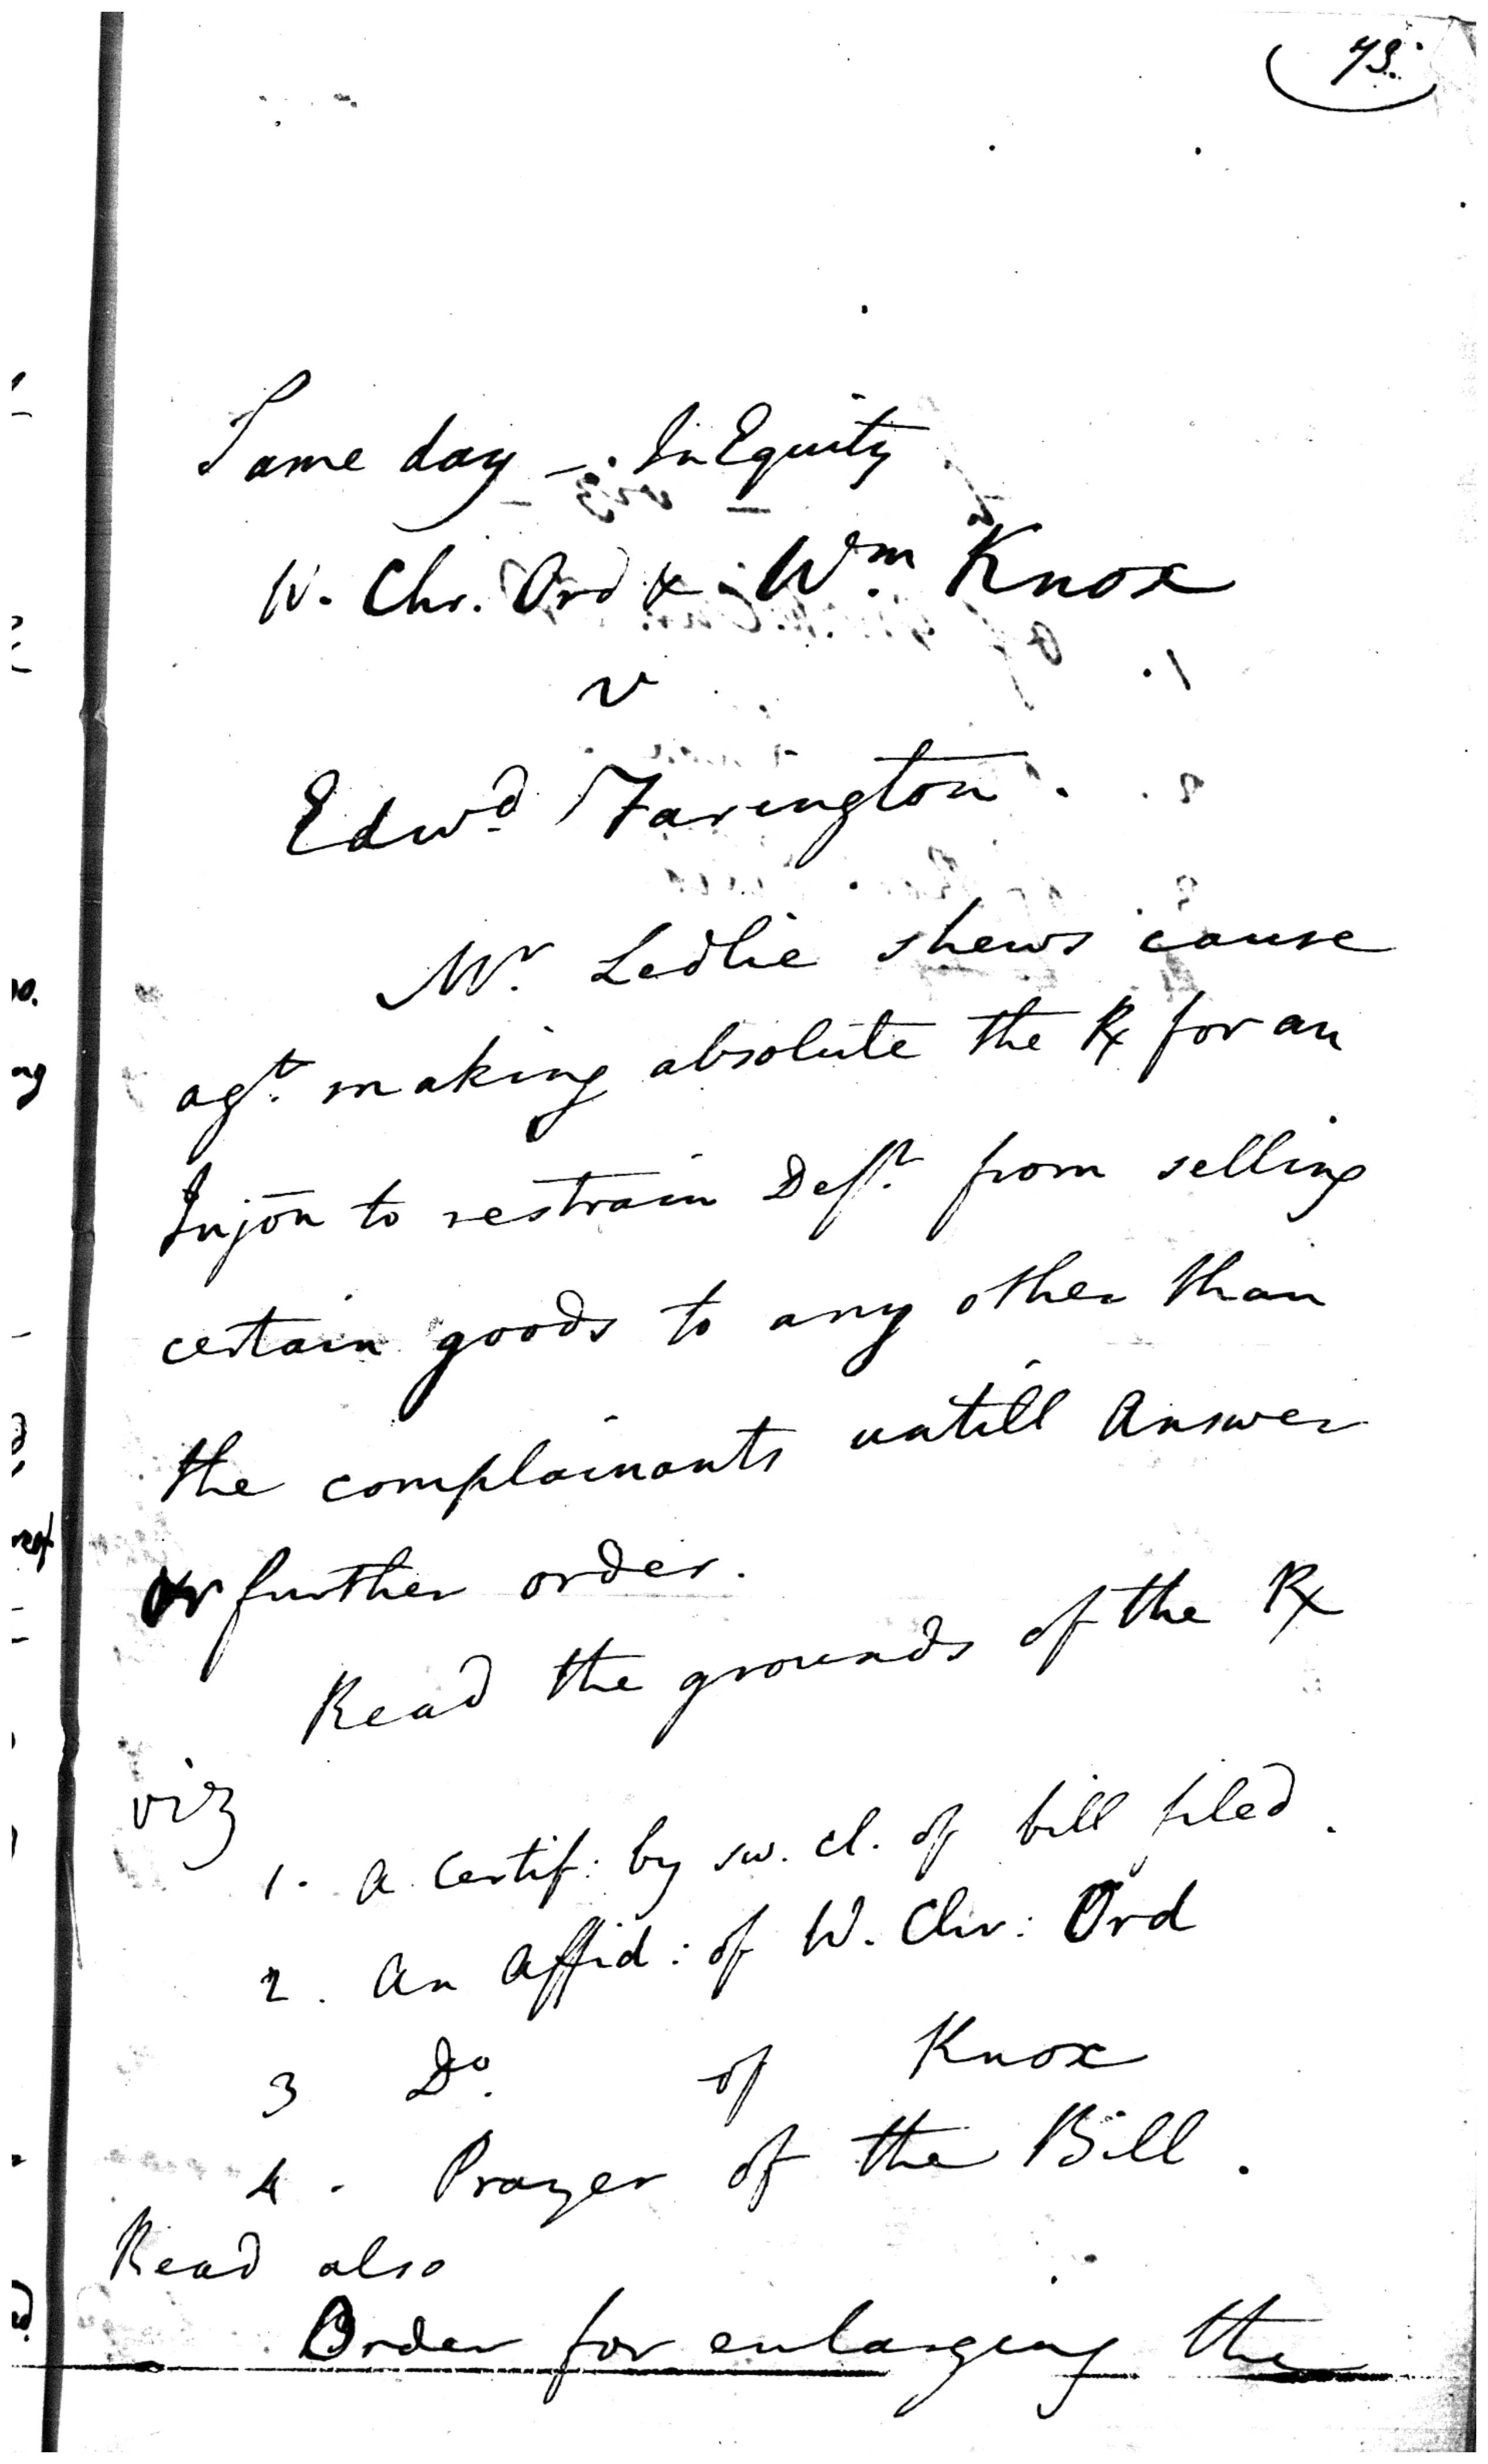 73.
Same day —. In Equity
W. Chr. Ord & Wm Knox
v
Edwd Farington.
Mr. Ledlie shews cause
agt. making absolute the Rx for an
Injōn to restrain Deft. from selling
certain goods to any other than
the complainants untill Answer
or further order.
Read the grounds of the Rx
viz
1. A Certif: by sw. cl. of bill filed.
2. An Affid: of W. Chr: Ord
3 Do. of Knox
4. Prayer of the Bill.
Read also
Order for enlarging the